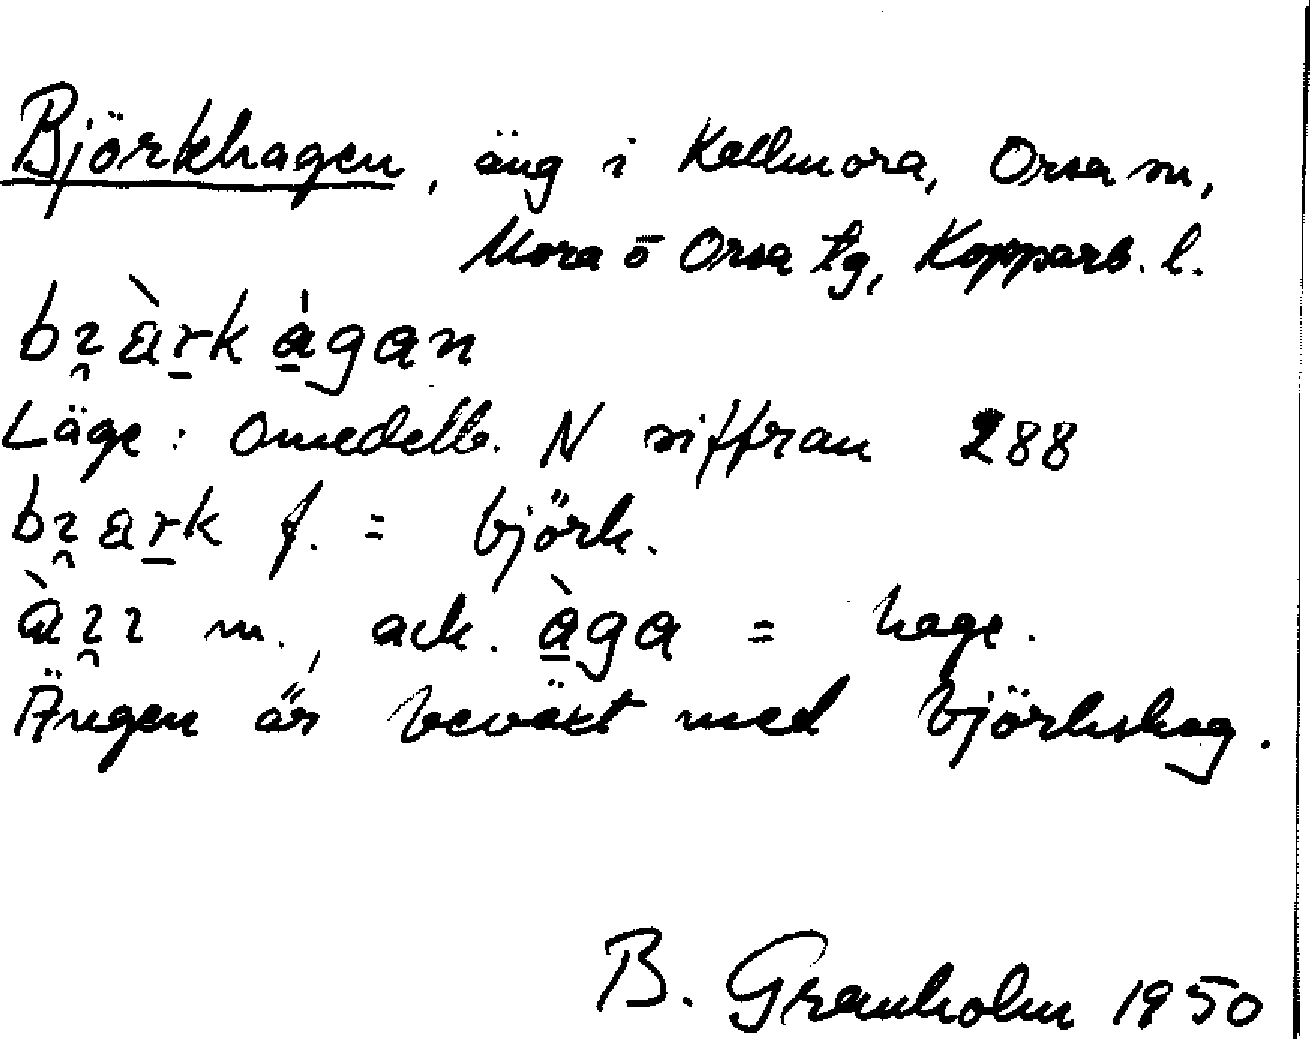 Björkhagen, äng i Kallmora, Orsa sn,
Mora o Orsa tg, Kopparb. l.
bı̯àr̲k a̲̍gan
Läge: Omedelb. N siffran 288
bı̯ar̲k f. = björk.
àı̯ı m., ack. à̲ga = hage.
Ängen är beväxt med björkskog.
B. Granholm 1950